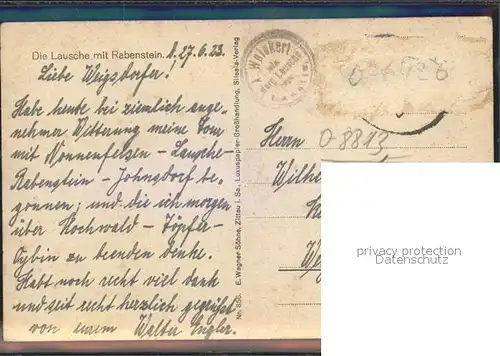 Die Lausche mit Rabenstein. d. 27.6.23.
Liebe Weigsdorfer!
Habe heute bei ziemlich ange-
nehmer Witterung meine Tour
mit Nonnenfelsen – Lausche –
Rabenstein – Johnsdorf be-
gonnen; und die ich morgen
über Hochwald – Töpfer –
Oybin zu beenden denke.
Habt noch recht viel dank
und seit recht herzlich gegrüßt
von eurem Walter Engler.
Nr. 856 E. Wagner Söhne, Zittau i. Sa., Luxuspapier-Großhandlung, Silesia-Verlag
A. Weickert
Herrn
O 8813
Wilhe
privacy protection
www.ansichtskarten-center.de